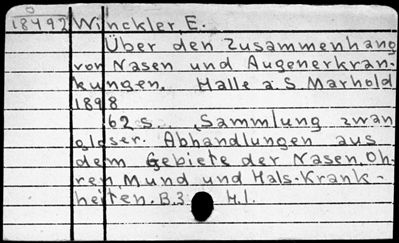 18492 Winckler, E.
Über den Zusammenhang
von Nasen und Augenerkran-
kungen. Halle a. S. Marhold
1898
62 s. Sammlung zwan
gloser. Abhandlungen aus
dem Gebiete der Nasen, Oh-
ren, Mund und Hals-Krank-
heiten. B.3. H.1.